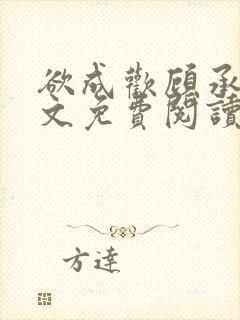 欲成歡顧承
文免費閱讀
方達